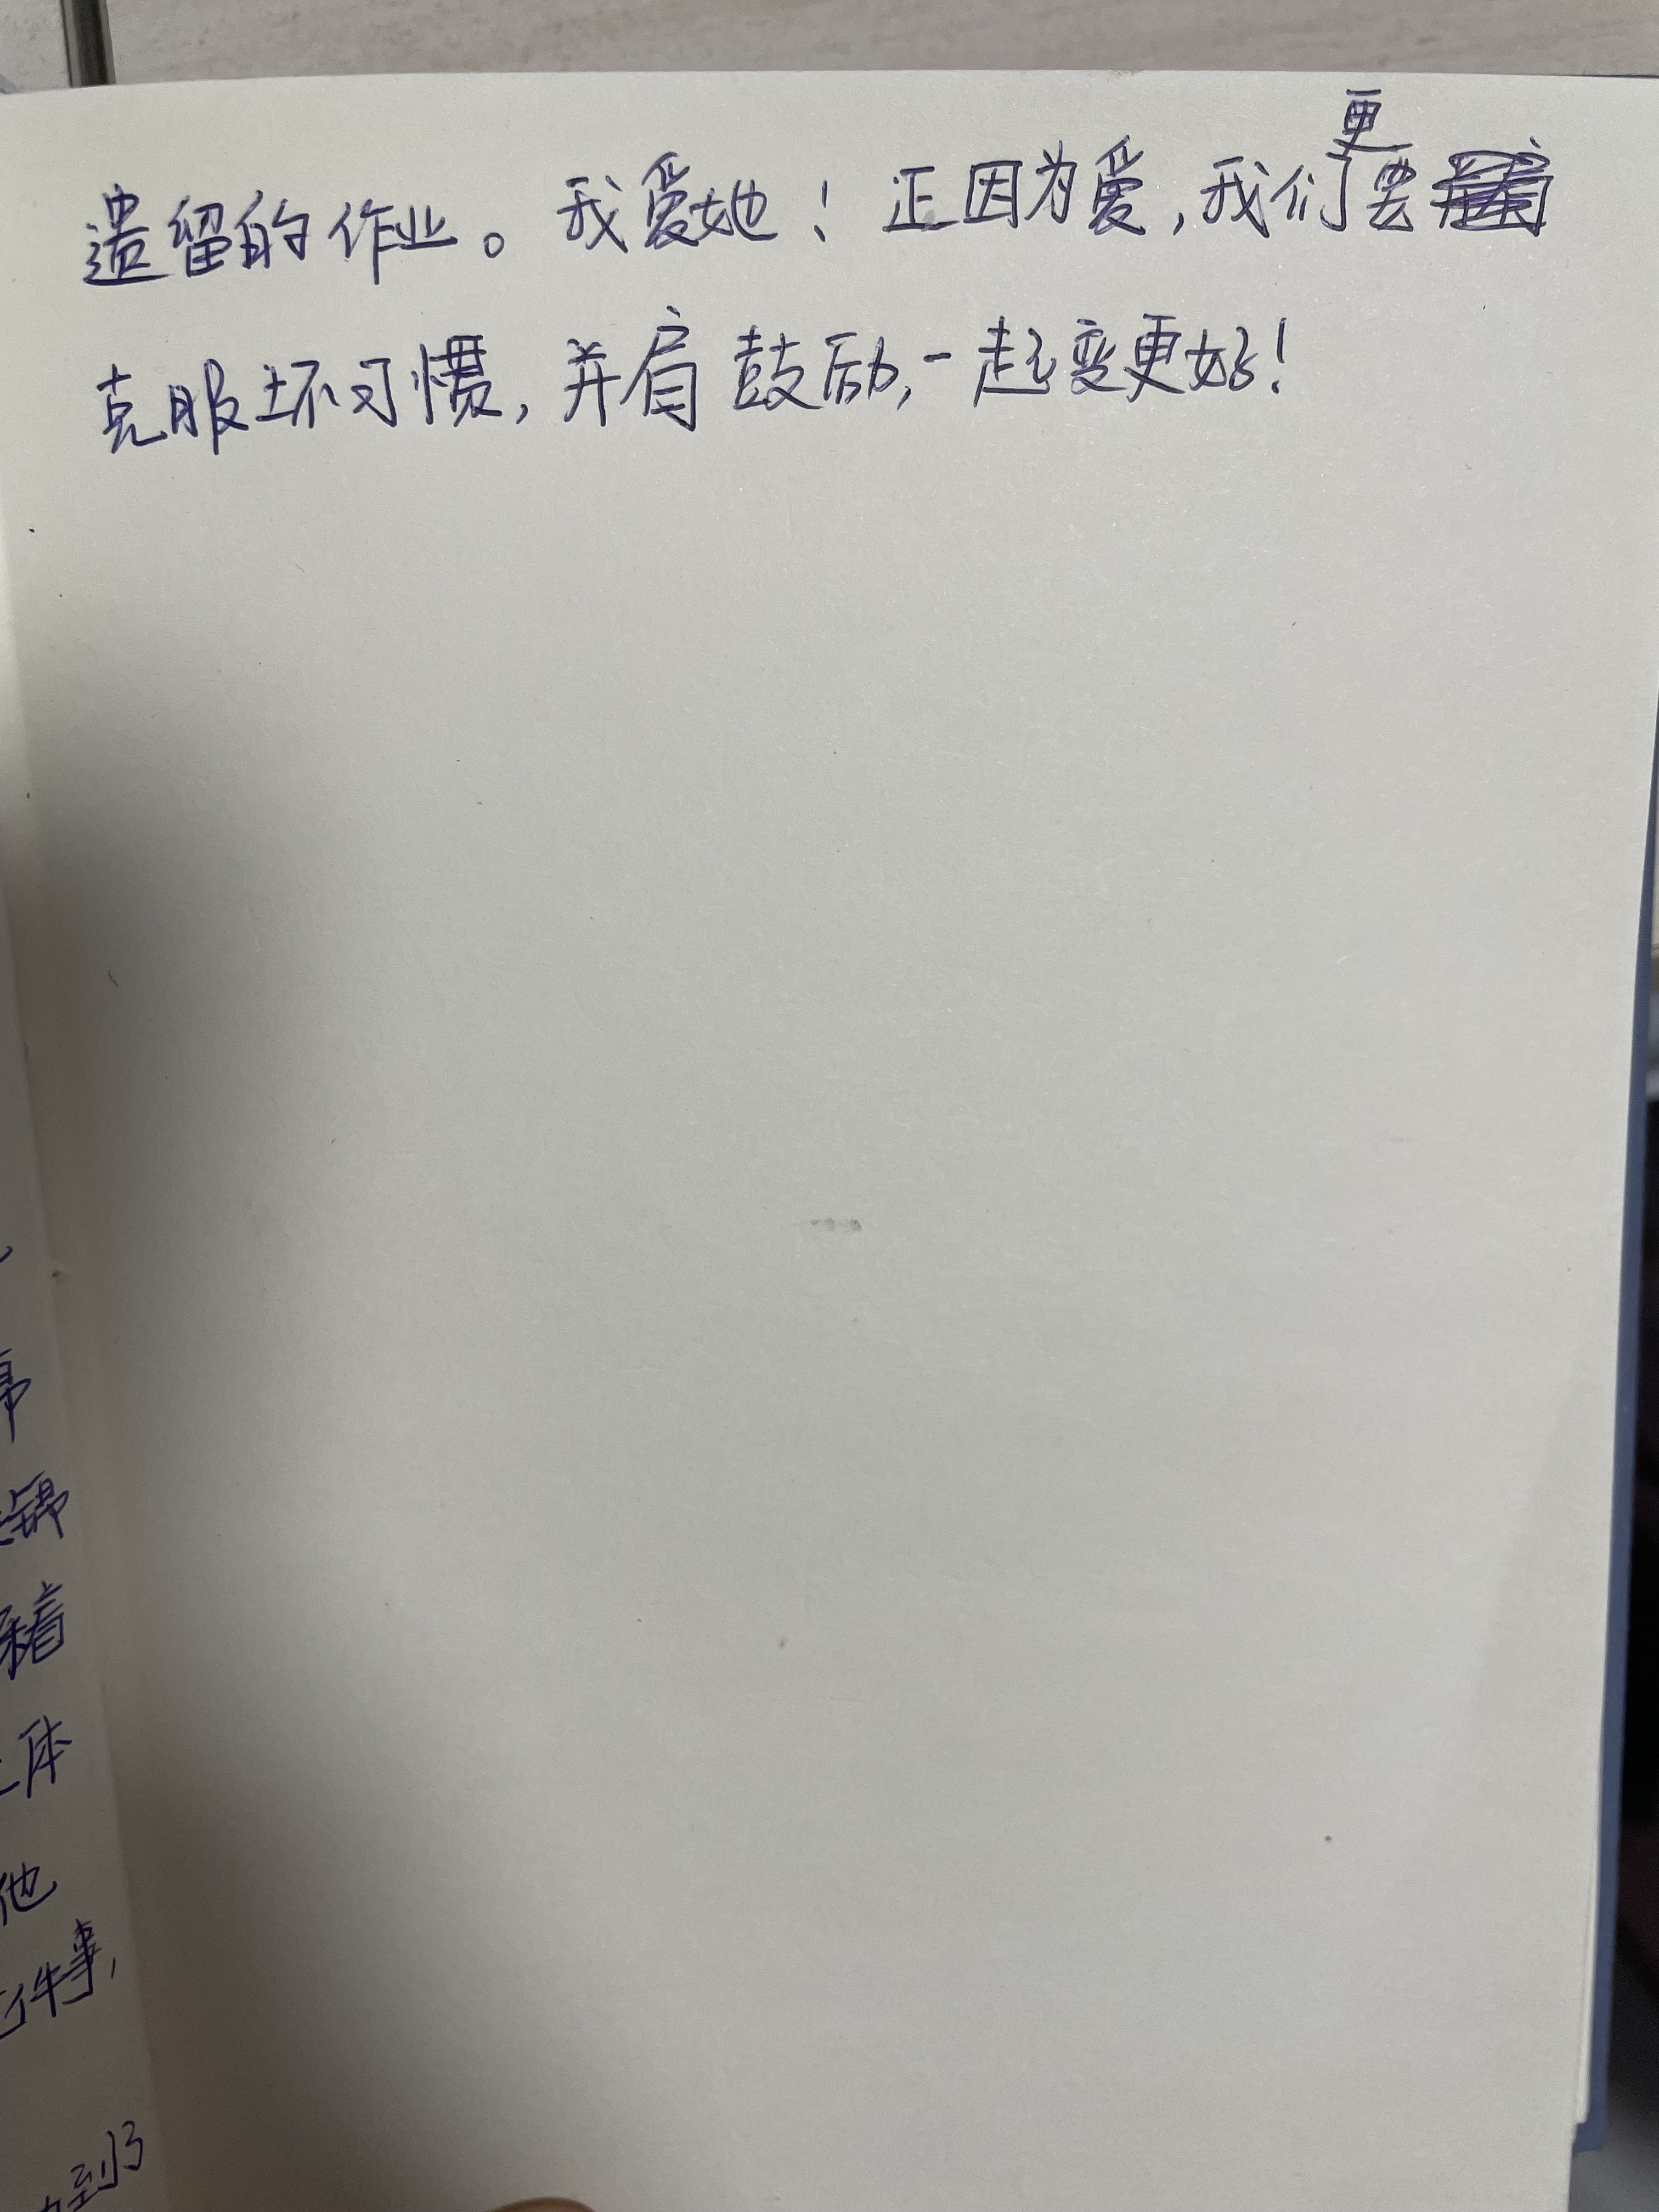 遗留的作业。我爱她！正因为爱，我们更要
克服坏习惯，并肩鼓励，一起变更好！
帚
锦
着
体
他
件事，
到了